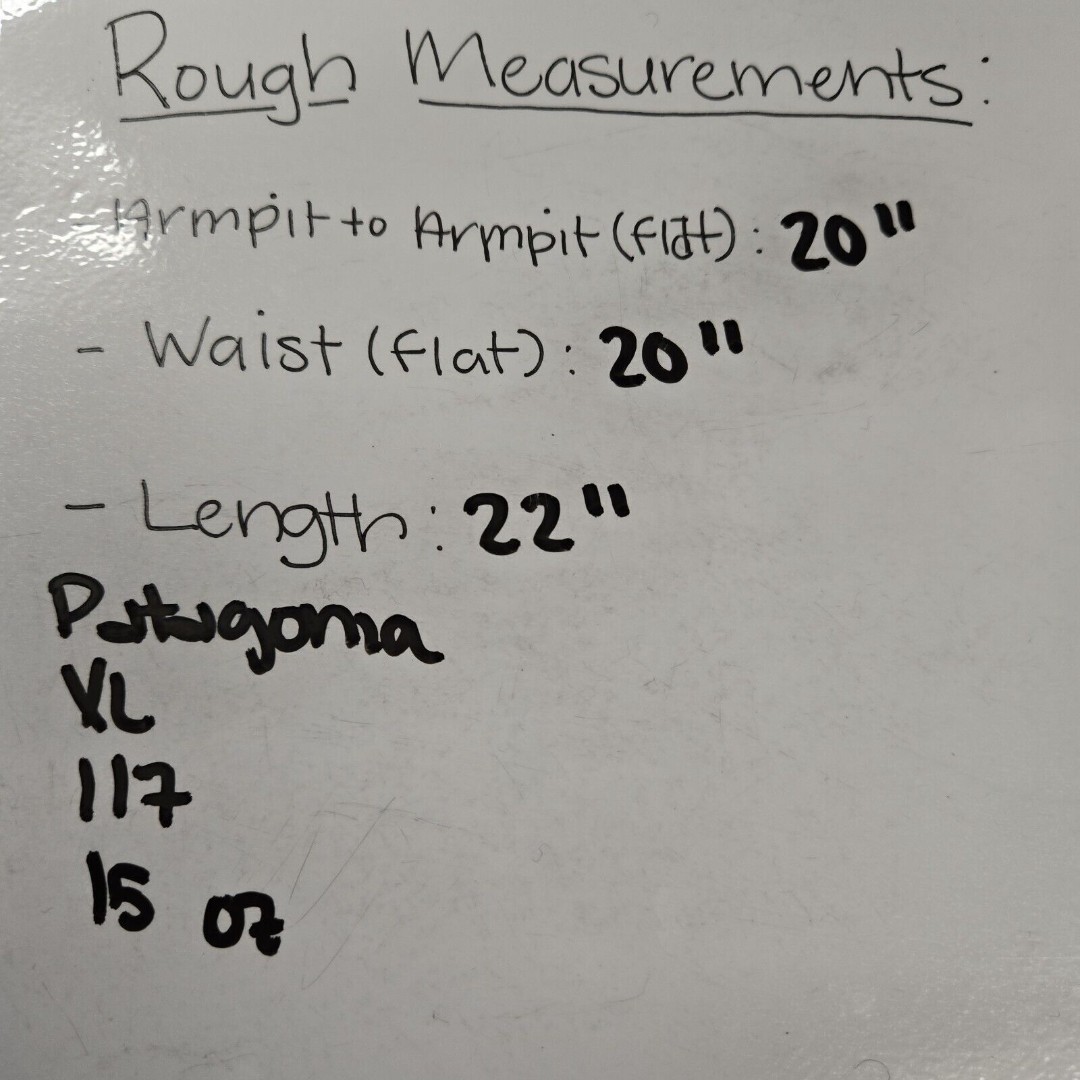 Rough Measurements:
- Armpit to Armpit (flat): 20"
- Waist (flat): 20"
- Length: 22"
Patagonia
XL
117
15 oz